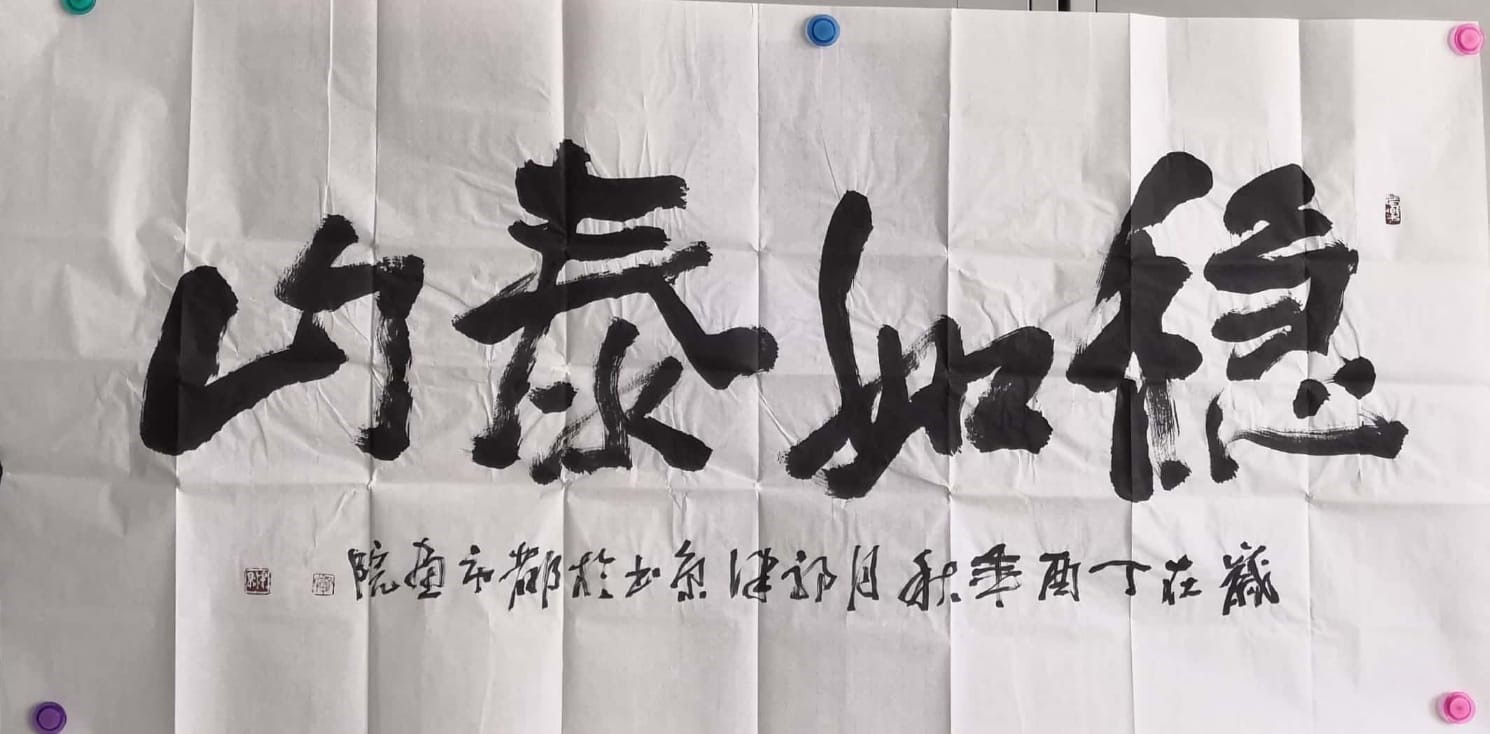 稳如泰山
歲在丁酉年秋月郭津京书於都市畫院